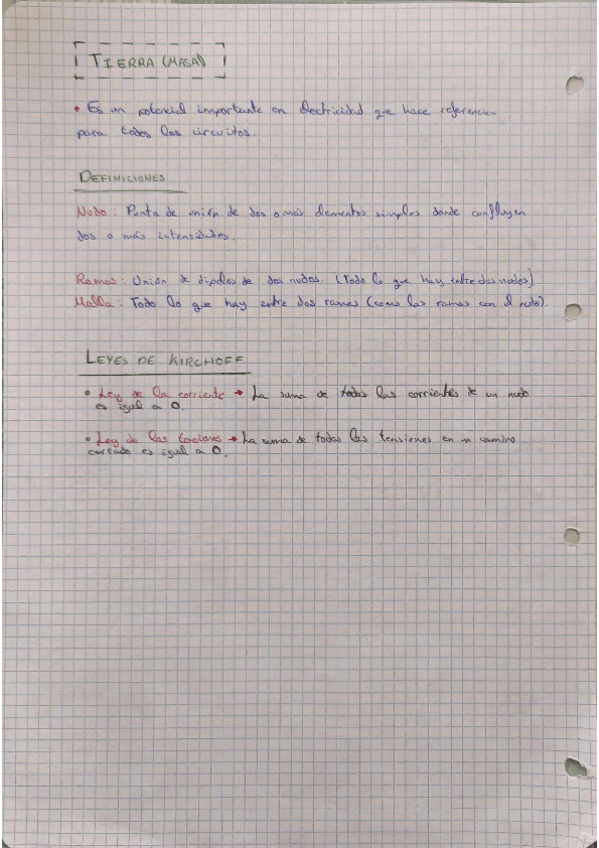 TIERRA (MASA)
• Es un potencial importante en electricidad que hace referencia
para todos los circuitos.
DEFINICIONES
Nodo: Punto de unión de dos o más elementos simples donde confluyen
dos o más intensidades.
Ramas: Unión de dipolos de dos nodos. (Todo lo que hay entre dos nodos)
Malla: Todo lo que hay entre dos ramas (como las ramas con el nodo).
LEYES DE KIRCHOFF
• Ley de la corriente → La suma de todas las corrientes de un nodo
es igual a 0.
• Ley de las tensiones → La suma de todas las tensiones en un camino
cerrado es igual a 0.